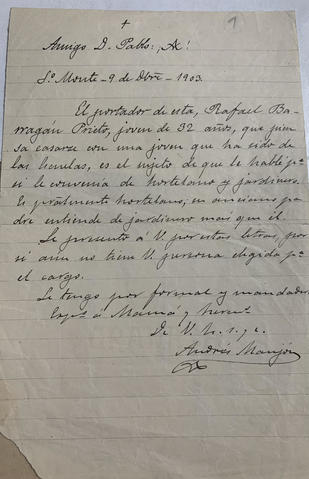 +
1
Amigo D. Pablo:
Sº Monte - 9 de Dbre - 1903.
El portador de esta, Rafael Ba-
rragán Prieto, joven de 32 años, que pien
sa casarse con una joven que ha sido de
las Escuelas, es el sujeto de que le hablé pª
si le convenia de hortelano y jardinero.
Es pralmente hortelano; su anciano pa-
dre entiende de jardinero mas que él.
Se presenta á V. por estas letras, por
si aun no tiene V. persona elegida pª
el cargo.
Le tengo por formal y mandado.
á Mamá y
De V. s. y c.
Andrés Manjón